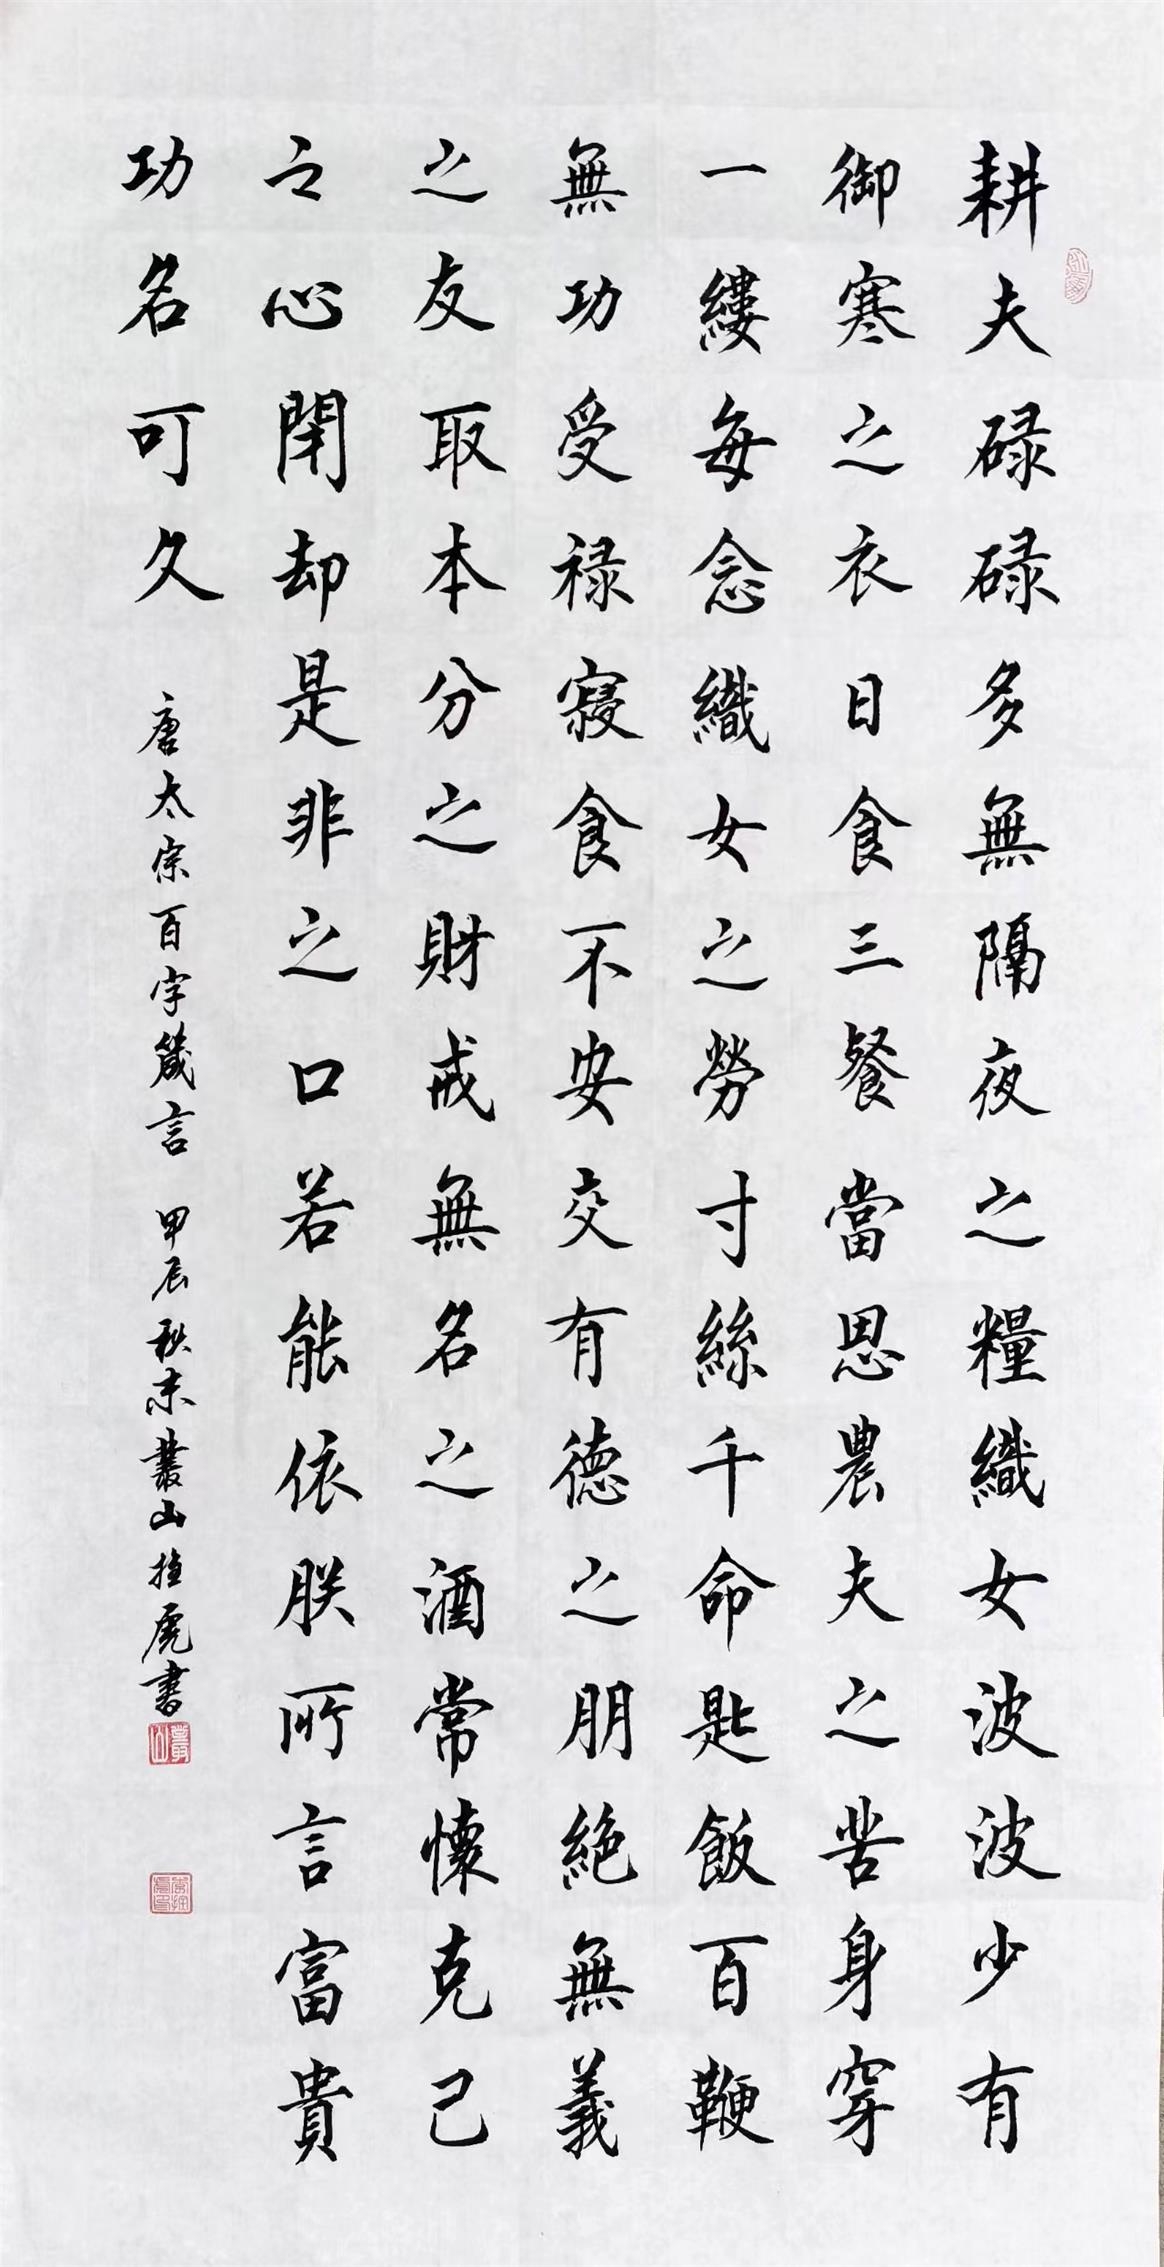 耕夫碌碌多無隔夜之糧織女波波少有
御寒之衣日食三餐當思農夫之苦身穿
一縷每念織女之勞寸絲千命匙飯百鞭
無功受禄寢食不安交有德之朋絶無義
之友取本分之財戒無名之酒常懷克己
之心閉却是非之口若能依朕所言富貴
功名可久
唐太宗百字箴言 甲辰秋末叢山 虎書
叢山